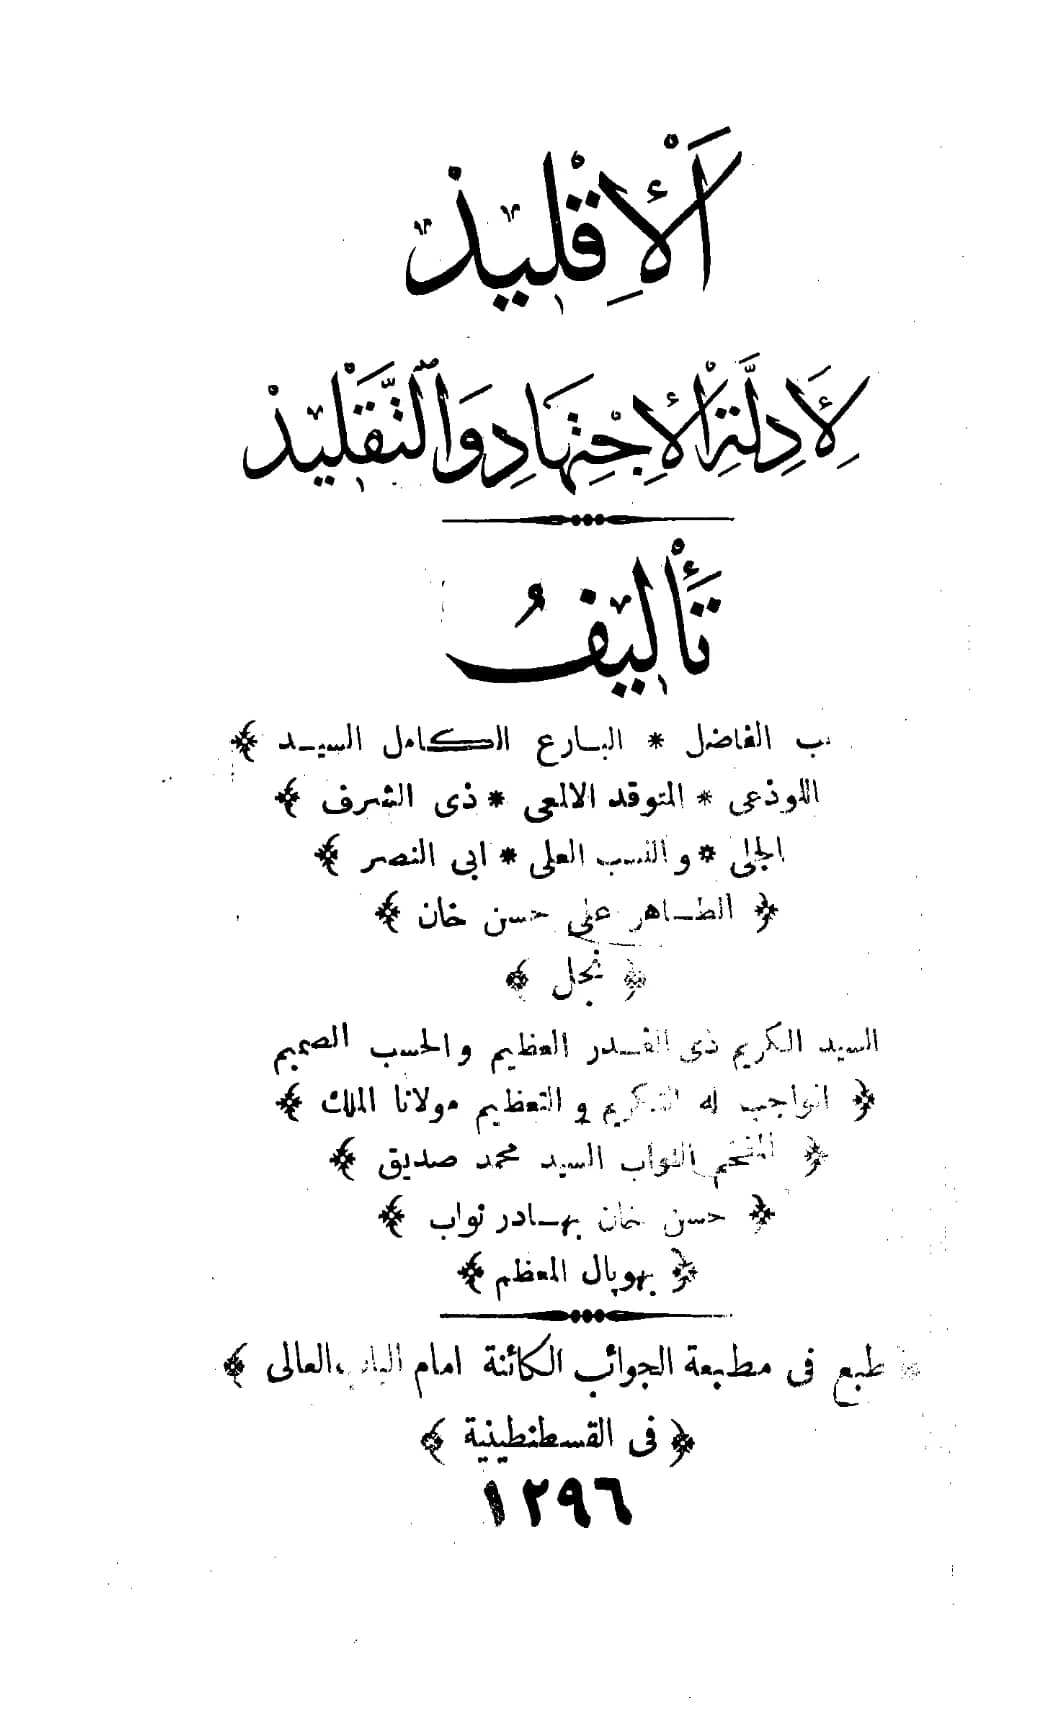 اَلْإِقْلِيذ
لِأَدِلَّةِ الْإِجْتِهَادِ وَالتَّقْلِيذ
تَأْلِيفُ
الفاضل * البارع الكامل السيد ﴾
اللوذعى * المتوقد الالمعى * ذى الشرف ﴾
الجلى * والنسب العلى * ابى النصر ﴾
﴿ الطاهر على حسن خان ﴾
﴿ نجل ﴾
السيد الكريم ذى القدر العظيم والحسب الصميم
﴿ الواجب له التكريم والتعظيم مولانا الملك ﴾
﴿ المفخم النواب السيد محمد صديق ﴾
﴿ حسن خان بهادر نواب ﴾
﴿ بهوپال المعظم ﴾
﴿ طبع فى مطبعة الجوائب الكائنة امام الباب العالى ﴾
﴿ فى القسطنطينية ﴾
١٢٩٦